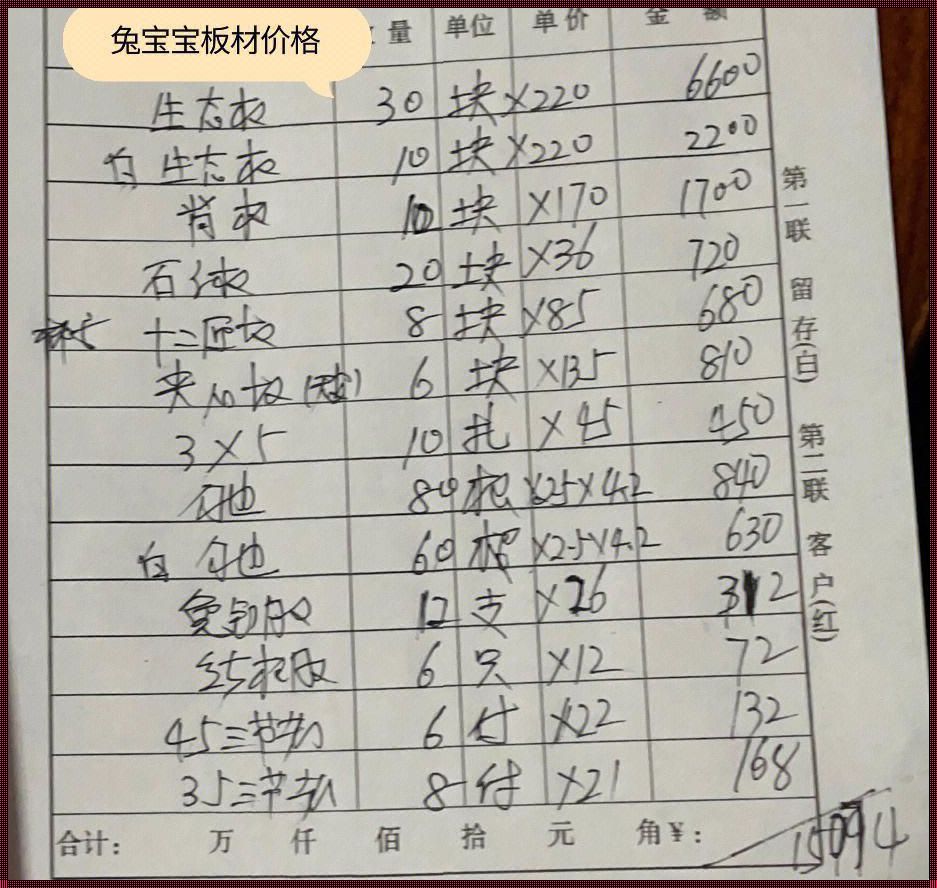 兔宝宝板材价格
量 单位 单价 金额
生态板 30 块 ×220 6600
白生态板 10 块 ×220 2200
背板 10 块 ×170 1700
石休板 20 块 ×36 720
十二匠板 8 块 ×85 680
夹心板 6 块 ×135 810
3×5 10 扎 ×45 450
80 根 ×2.5×4.2 840
白 60 根 ×2.5×4.2 630
免钉胶 12 支 ×26 312
结构胶 6 只 ×12 72
45三节轨 6 付 ×22 132
35三节轨 8 付 ×21 168
合计: 万 仟 佰 拾 元 角 ¥: 15094
第一联 留存(白) 第二联 客户(红)